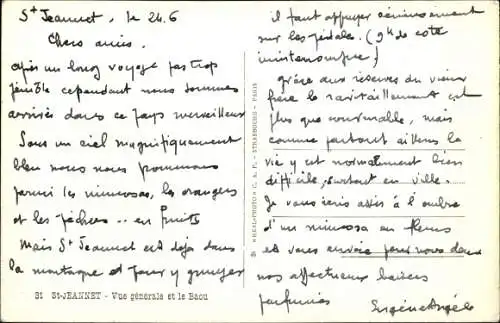 St Jeannet, le 24.6
Chers amis.
Après un long voyage pas trop
pénible cependant nous sommes
arrivés dans ce pays merveilleux
Sous un ciel magnifiquement
bleu nous nous promenons
parmi les mimosas, les orangers
et les pêchers... en fruits
Mais St Jeannet est déjà dans
la montagne et pour y grimper
il faut appuyer sérieusement
sur les pédales. (9k de côte
ininterrompue)
grâce aux réserves du vieux
frère le ravitaillement est
plus que convenable, mais
comme partout ailleurs la
vie y est normalement bien
difficile, surtout en ville.
Je vous écris assis à l'ombre
d'un mimosa en fleurs
et vous envoie pour nous deux
nos affectueux baisers
parfumés
Eugène Angèle
31 St-JEANNET - Vue générale et le Baou
STRASBOURG - PARIS